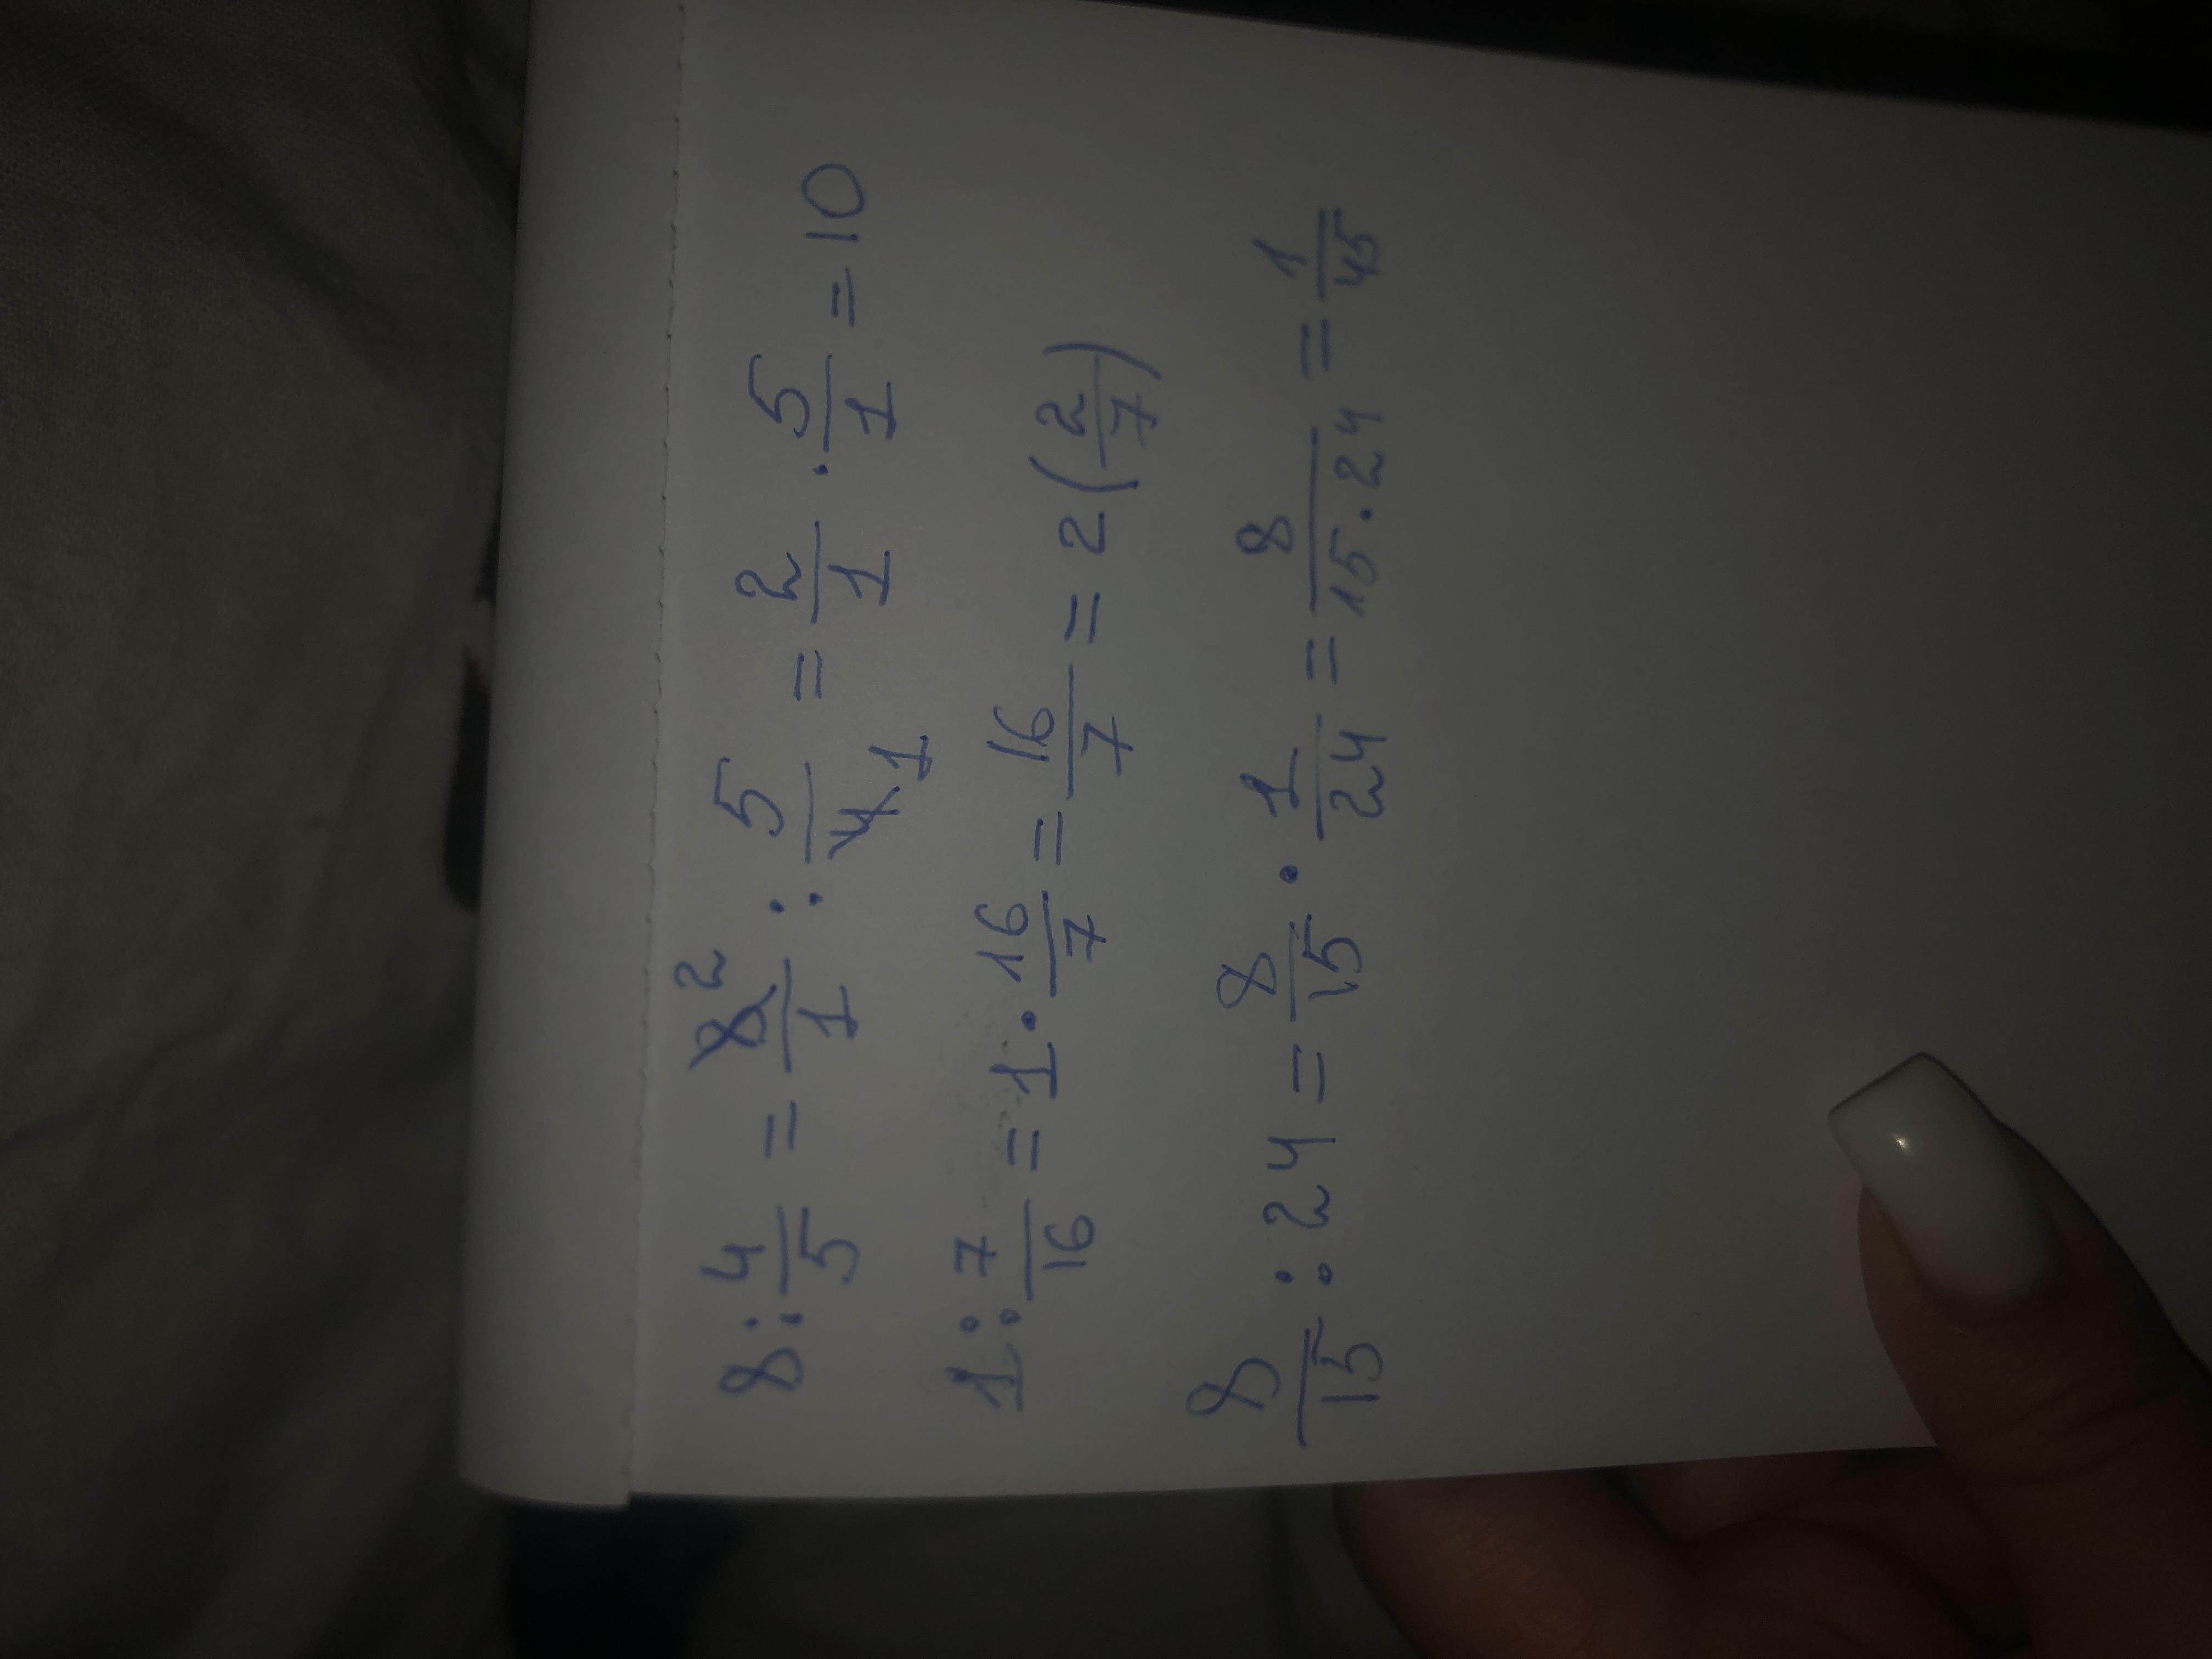 8 : 4/5 = 8/1 2 : 5/4 1 = 2/1 · 5/1 = 10
1 : 7/16 = 1 · 16/7 = 16/7 = 2 (2/7)
8/15 : 24 = 8/15 · 1/24 = 8/15·24 = 1/45